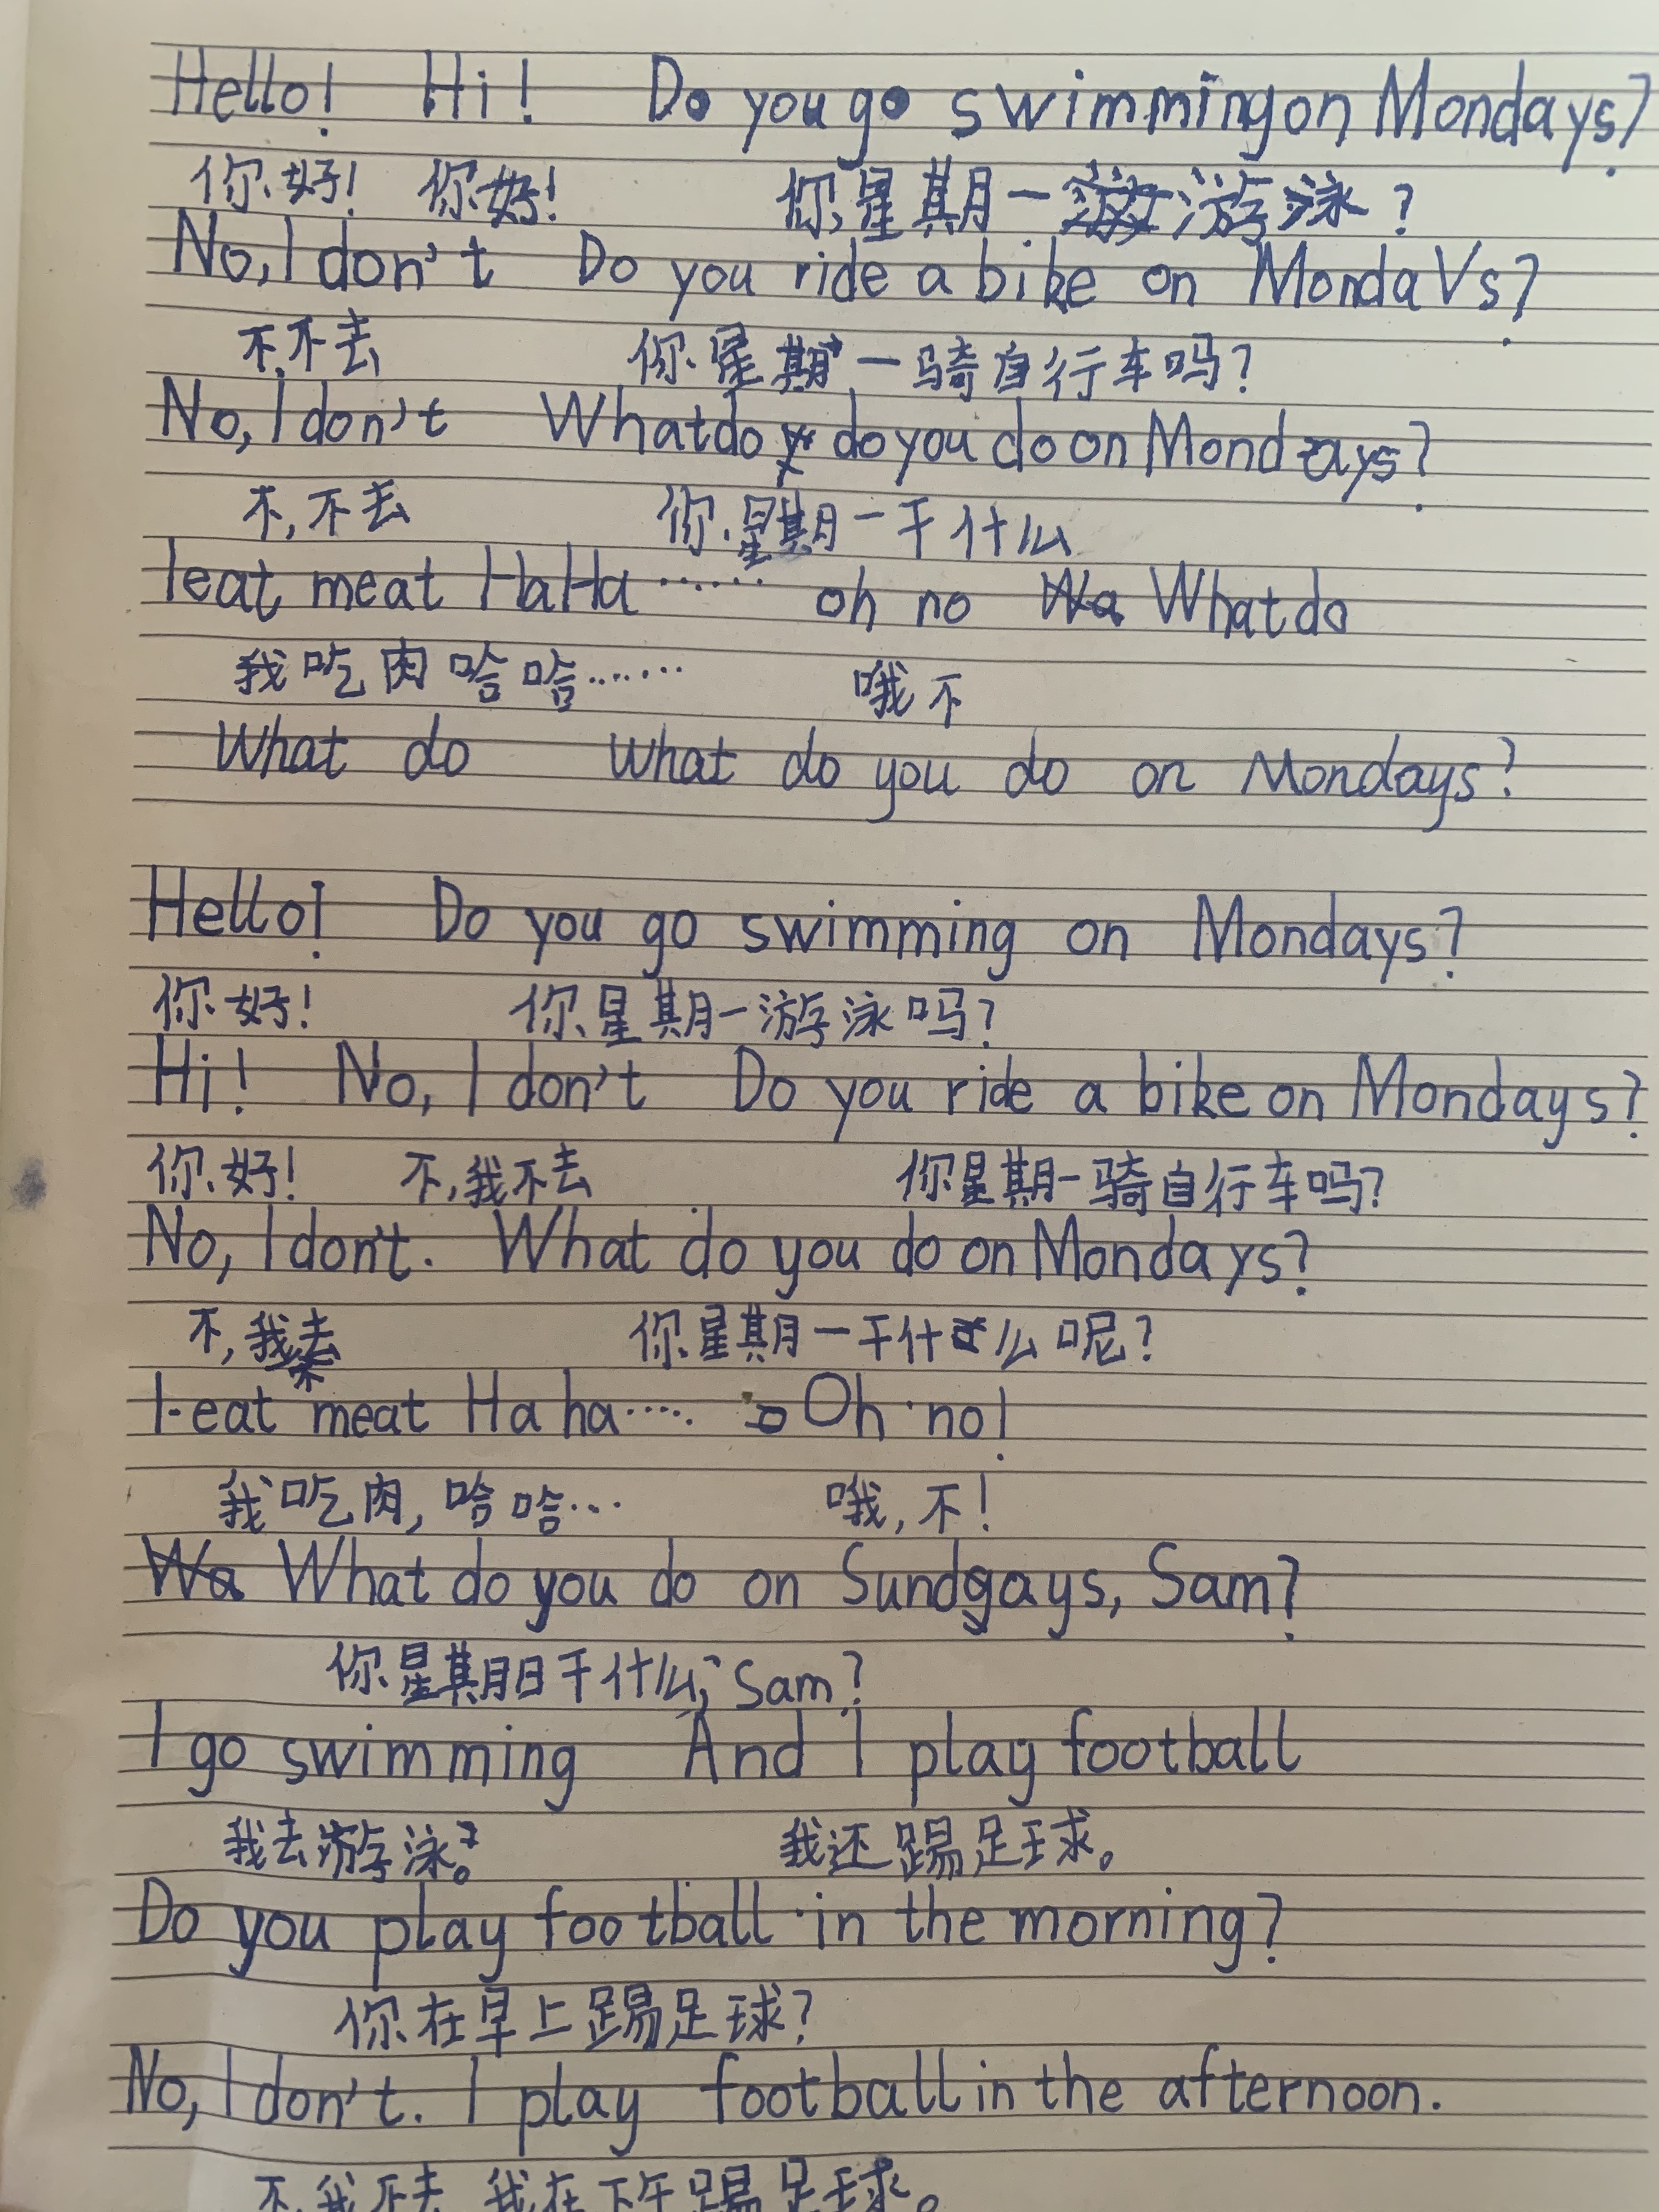 Hello! Hi! Do you go swimming on Mondays?
你好! 你好! 你星期一游泳?
No, I don't Do you ride a bike on MondaVs?
不,不去 你星期一骑自行车吗?
No, I don't What do do you do on Mondays?
不,不去 你星期一干什么
I eat meat HaHa …… oh no Wa What do
我吃肉哈哈…… 哦不
What do What do you do on Mondays?
Hello! Do you go swimming on Mondays?
你好! 你星期一游泳吗?
Hi! No, I don't Do you ride a bike on Mondays?
你好! 不,我不去 你星期一骑自行车吗?
No, I don't. What do you do on Mondays?
不,我去 你星期一干什么呢?
I eat meat Ha ha ····· Oh no!
我吃肉,哈哈… 哦,不!
Wa What do you do on Sundgays, Sam?
你星期日干什么, Sam?
I go swimming And I play football
我去游泳。 我还踢足球。
Do you play football in the morning?
你在早上踢足球?
No, I don't. I play football in the afternoon.
不,我不去 我在下午踢足球。